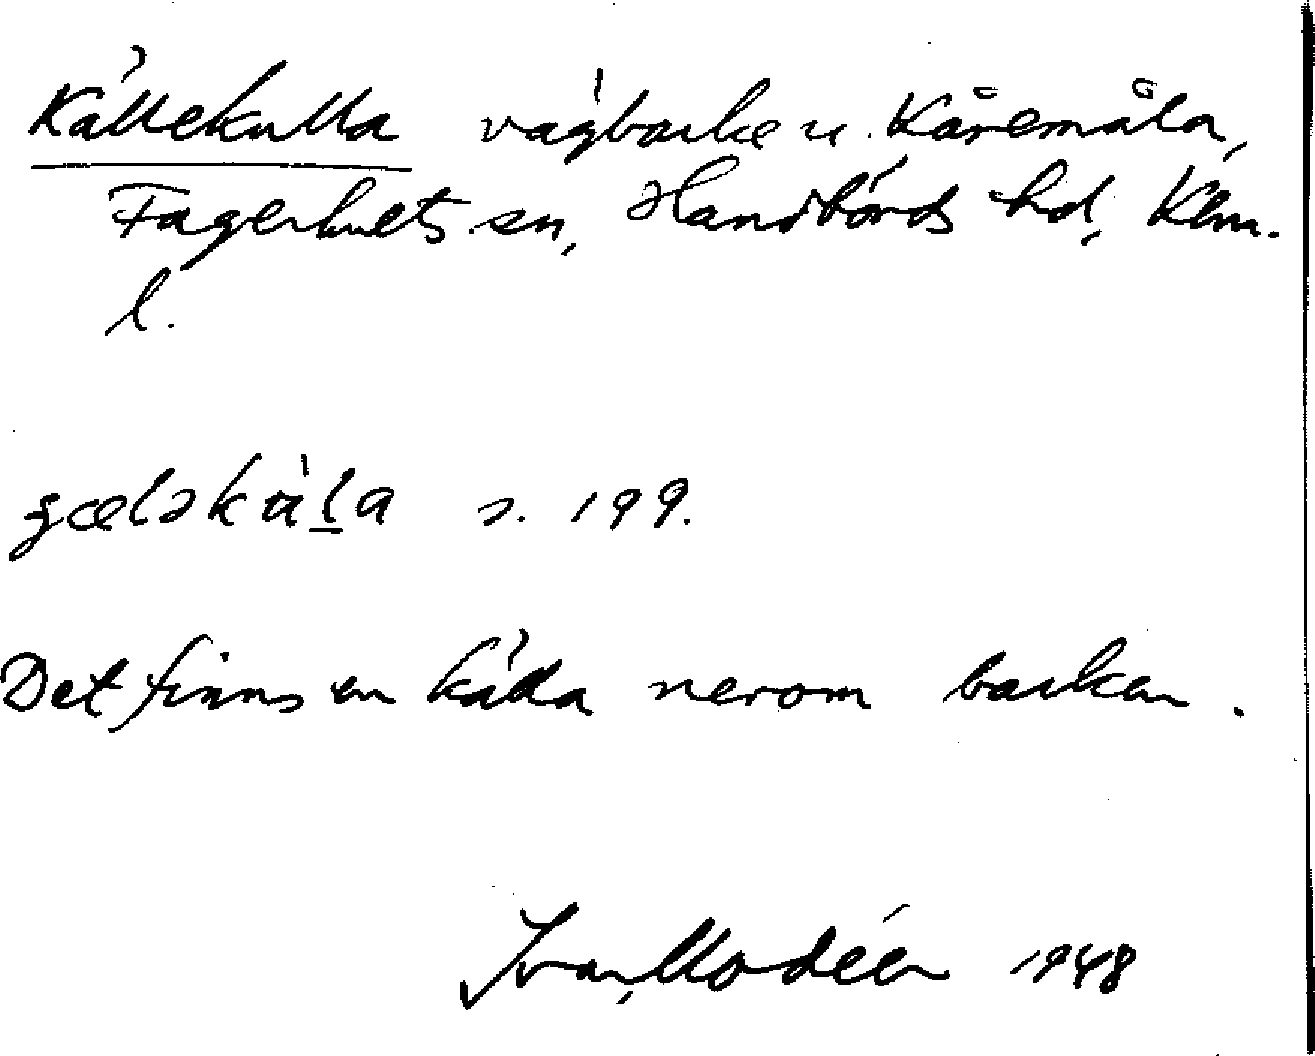 Källekulla vägbacke u. Kåremåla,
Fagerhults sn, Handbörds hd, Klm.
l.
s. 199.
Det finns en källa nerom backen.
Ivar Modéer 1948